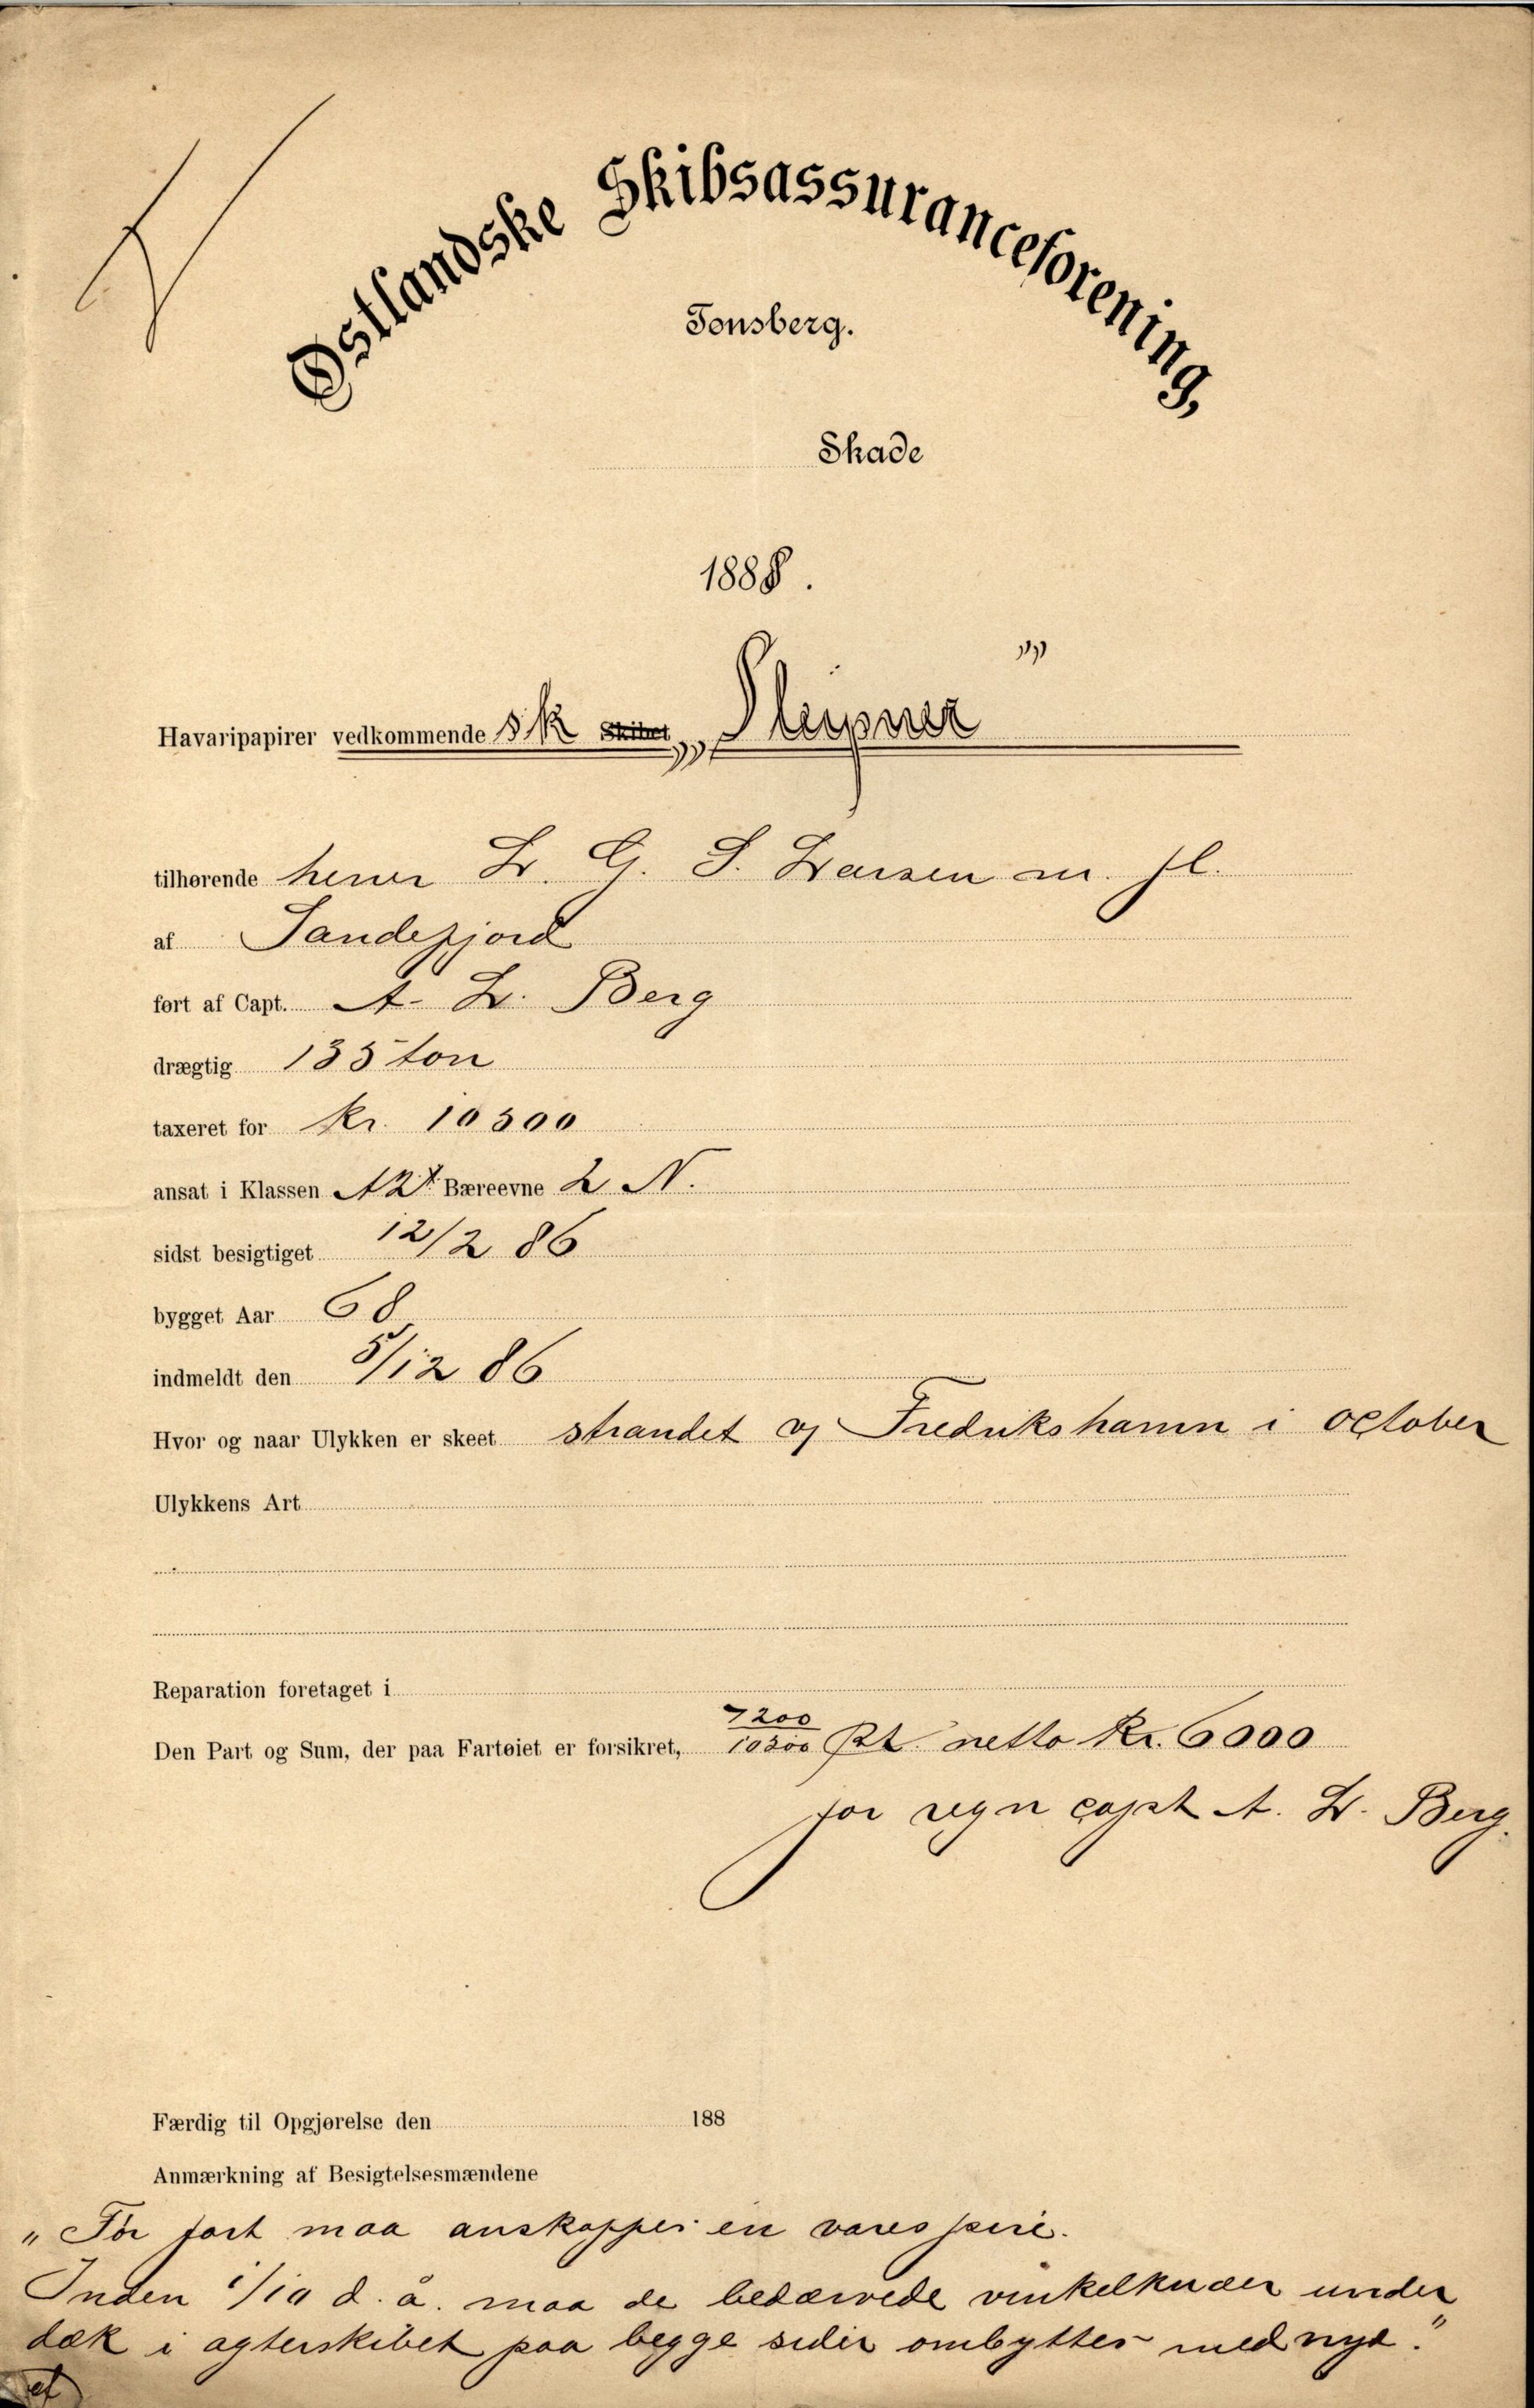 Østlandske Skibsassuranceforening,
Tønsberg.
Skade
1888.
Havaripapirer vedkommende SK Skibet „Sleipner”
tilhørende herrer L. G. S. Larsen m. fl.
af Sandefjord
ført af Capt. A. L. Berg
drægtig 135 ton
taxeret for Kr. 10300
ansat i Klassen A2† Bæreevne 2 N.
sidst besigtiget 12/2 86
bygget Aar 68
indmeldt den 5/12 86
Hvor og naar Ulykken er skeet strandet v/ Fredrikshamn i october
Ulykkens Art
Reparation foretaget i
Den Part og Sum, der paa Fartøiet er forsikret, 7200/10300 Pt. netto Kr. 6000
for regn capt A. L. Berg.
Færdig til Opgjørelse den 188
Anmærkning af Besigtelsesmændene
„Før fart maa anskaffes en varespire.
Inden 1/10 d. å. maa de bedærvede vinkelknæer under
dæk i agterskibet paa begge sider ombyttes med nye.”